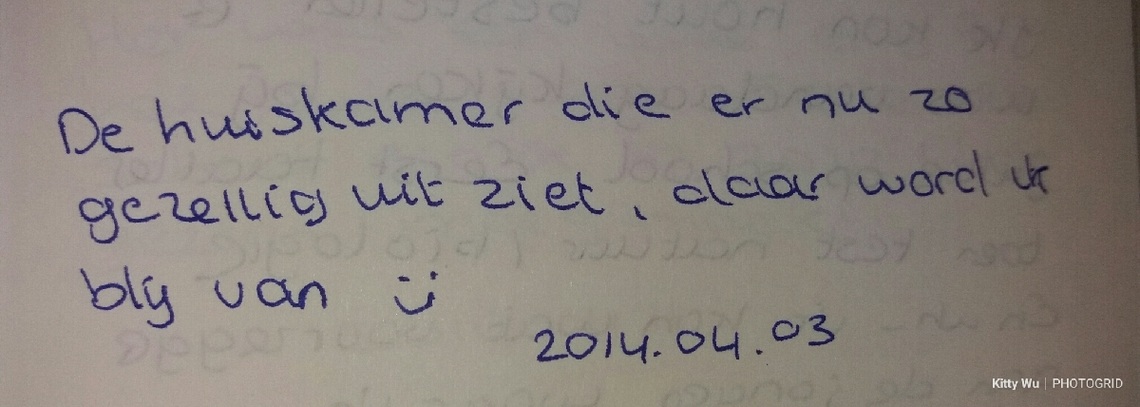 De huiskamer die er nu zo
gezellig uit ziet, daar word ik
blij van ü
2014.04.03
Kitty Wu | PHOTOGRID